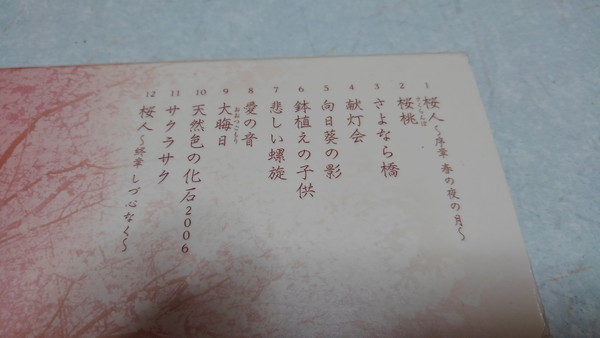 1 桜人〜序章 春の夜の月〜
2 桜桃
さくらんぼ
3 さよなら橋
4 献灯会
5 向日葵の影
6 鉢植えの子供
7 悲しい螺旋
8 愛の音
9 大晦日
おおつごもり
10 天然色の化石2006
11 サクラサク
12 桜人〜終章 しづ心なく〜